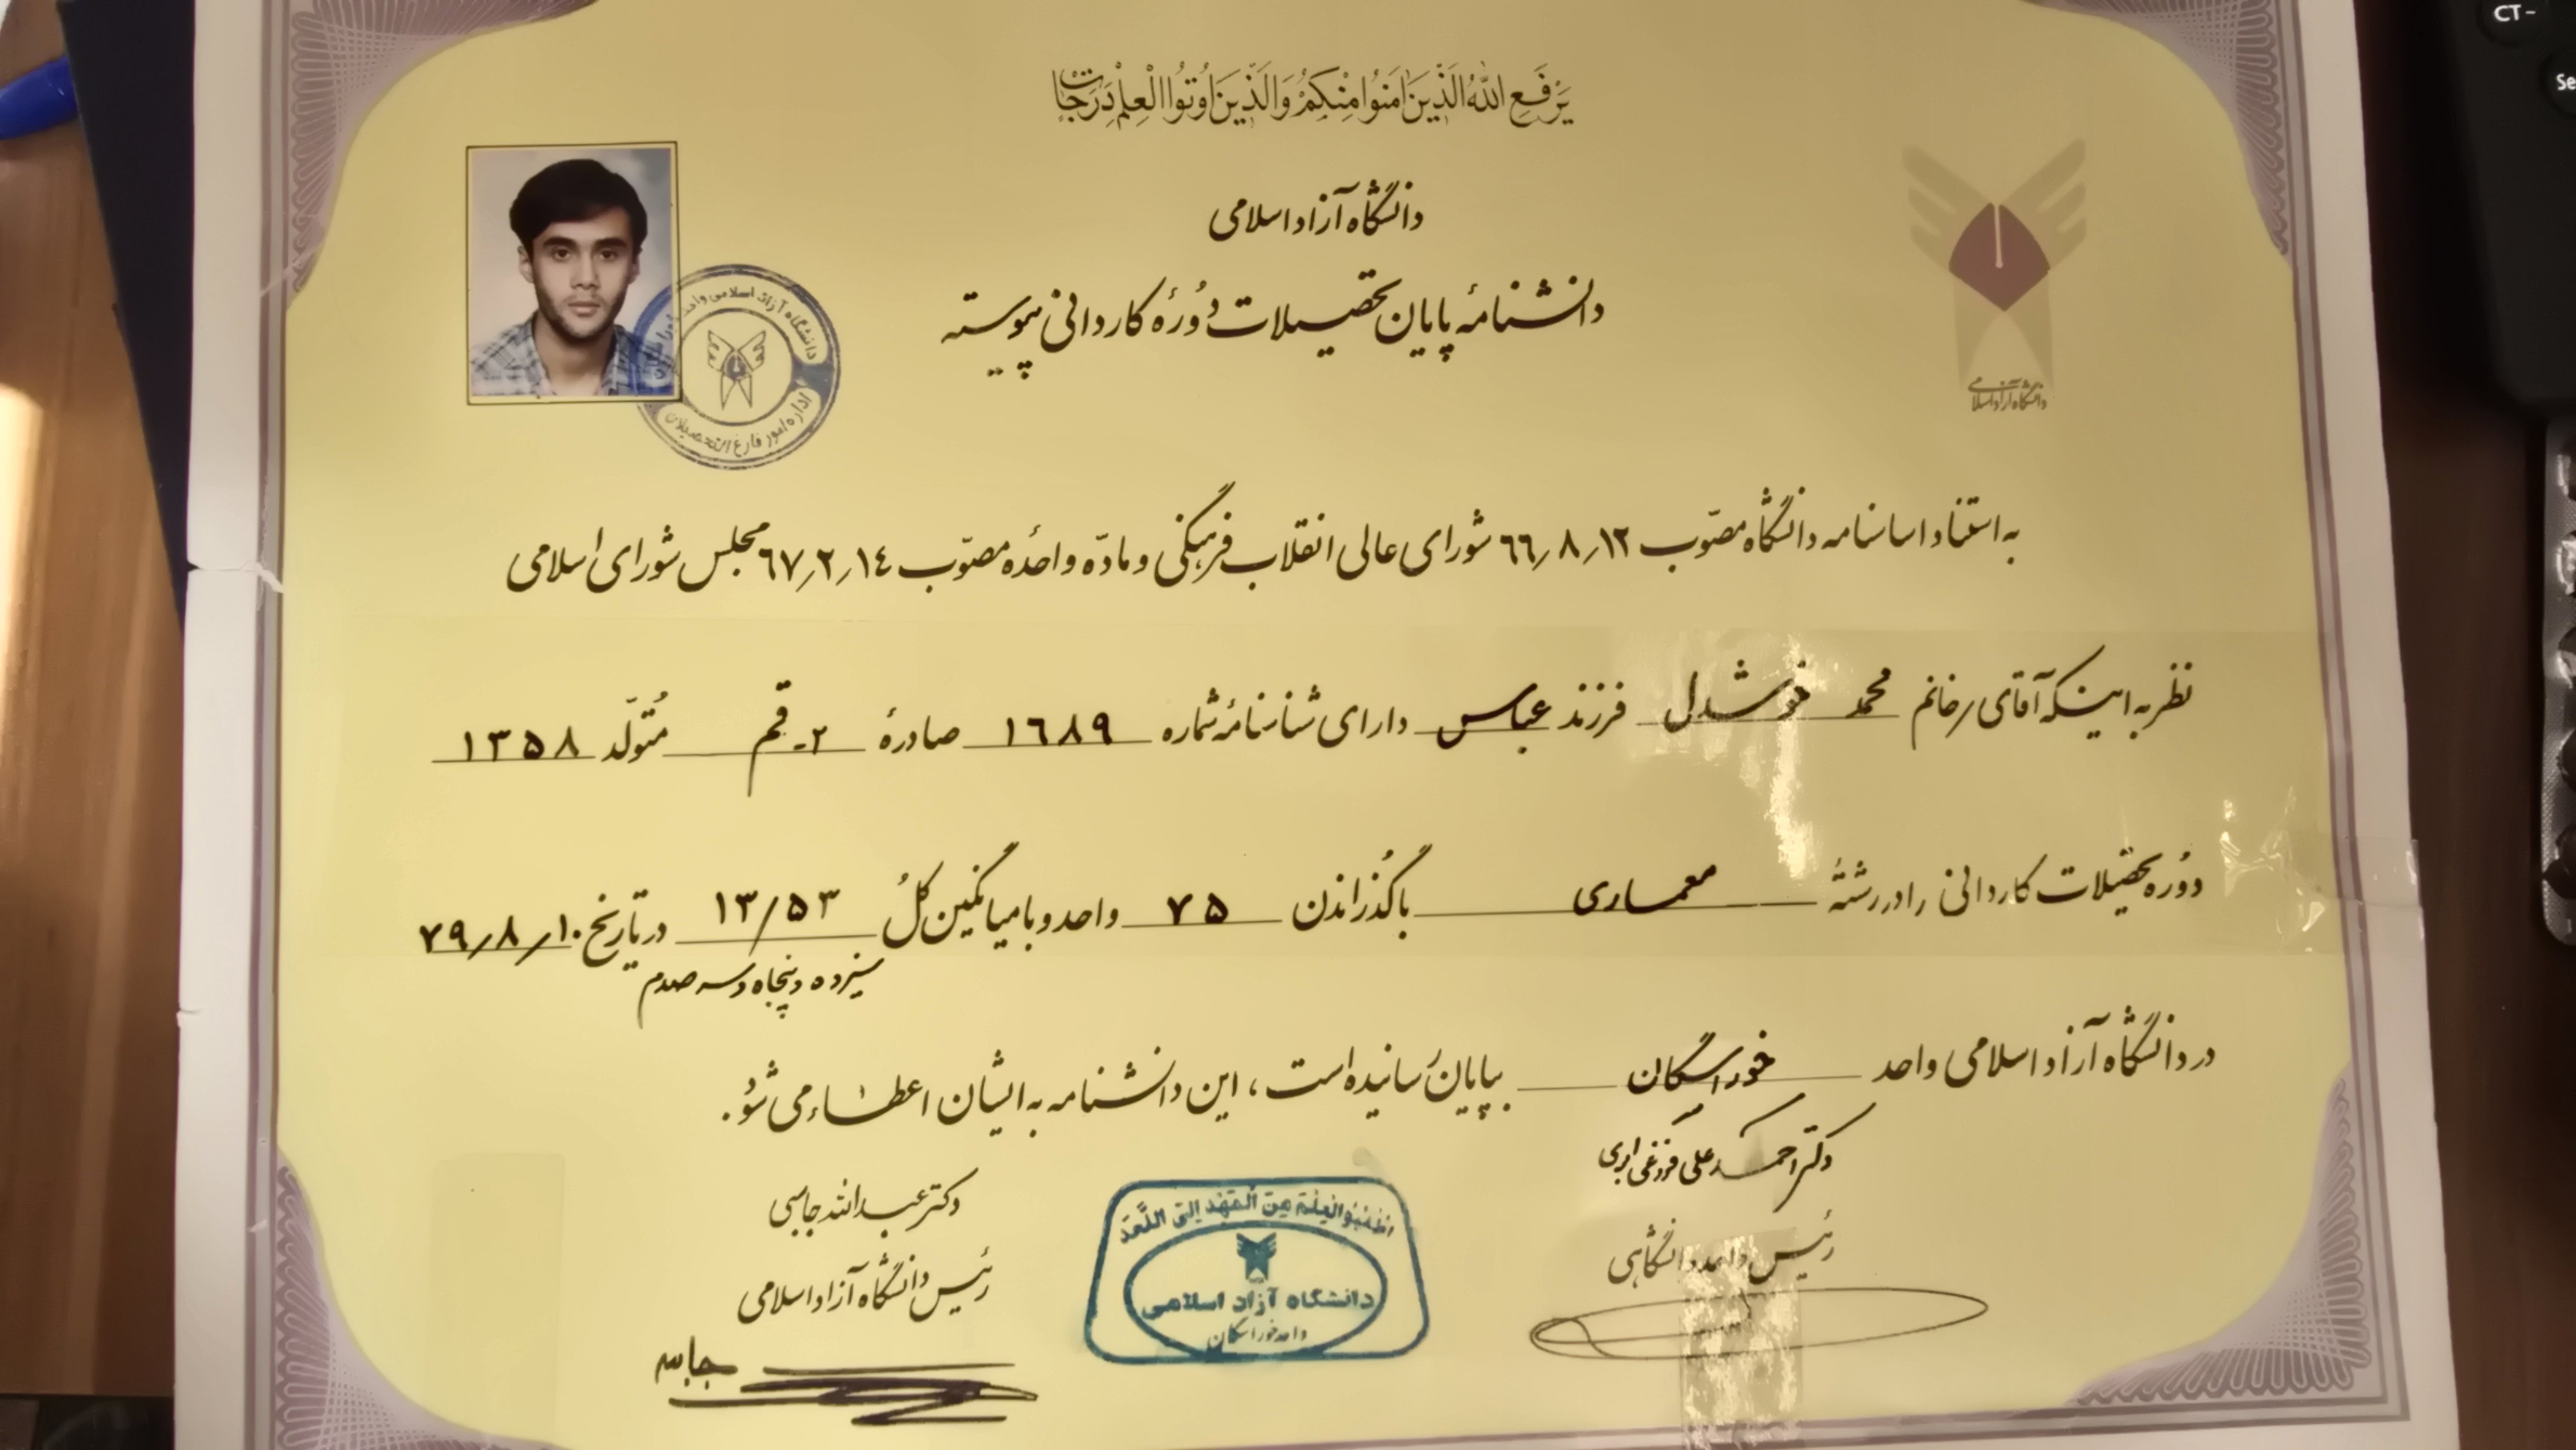 یَرْفَعِ اللهُ الَّذینَ امَنُوا مِنْکُمْ وَالَّذینَ اُوتُوا الْعِلْمَ دَرَجاتٍ
دانشگاه آزاد اسلامی
دانشنامهٔ پایان تحصیلات دورهٔ کاردانی پیوسته
دانشگاه آزاد اسلامی
دانشگاه آزاد اسلامی واحد
اداره امور فارغ التحصیلان
به استناد اساسنامه دانشگاه مصوّب ۶۶٫۸٫۱۲ شورای عالی انقلاب فرهنگی و مادّه واحدهٔ مصوّب ۶۷٫۲٫۱۴ مجلس شورای اسلامی
نظر به اینکه آقای/خانم محمد خوشدل فرزند عباس دارای شناسنامهٔ شماره ۱۶۸۹ صادرهٔ ۲ـ قم متولّد ۱۳۵۸
دوره تحصیلات کاردانی را در رشتهٔ معماری با گذراندن ۷۵ واحد و با میانگین کل ۱۳/۵۳ در تاریخ ۷۹٫۸٫۱۰
سیزده و پنجاه و سه صدم
در دانشگاه آزاد اسلامی واحد خوراسگان بپایان رسانیده است، این دانشنامه به ایشان اعطاء می شود.
دکتر احمد علی فروغی ابری
رئیس واحد دانشگاهی
اُطْلُبُوا الْعِلْمَ مِنَ الْمَهْدِ اِلَی اللَّحْدِ
دانشگاه آزاد اسلامی
واحد خوراسگان
دکتر عبدالله جاسبی
رئیس دانشگاه آزاد اسلامی
CT -
Se